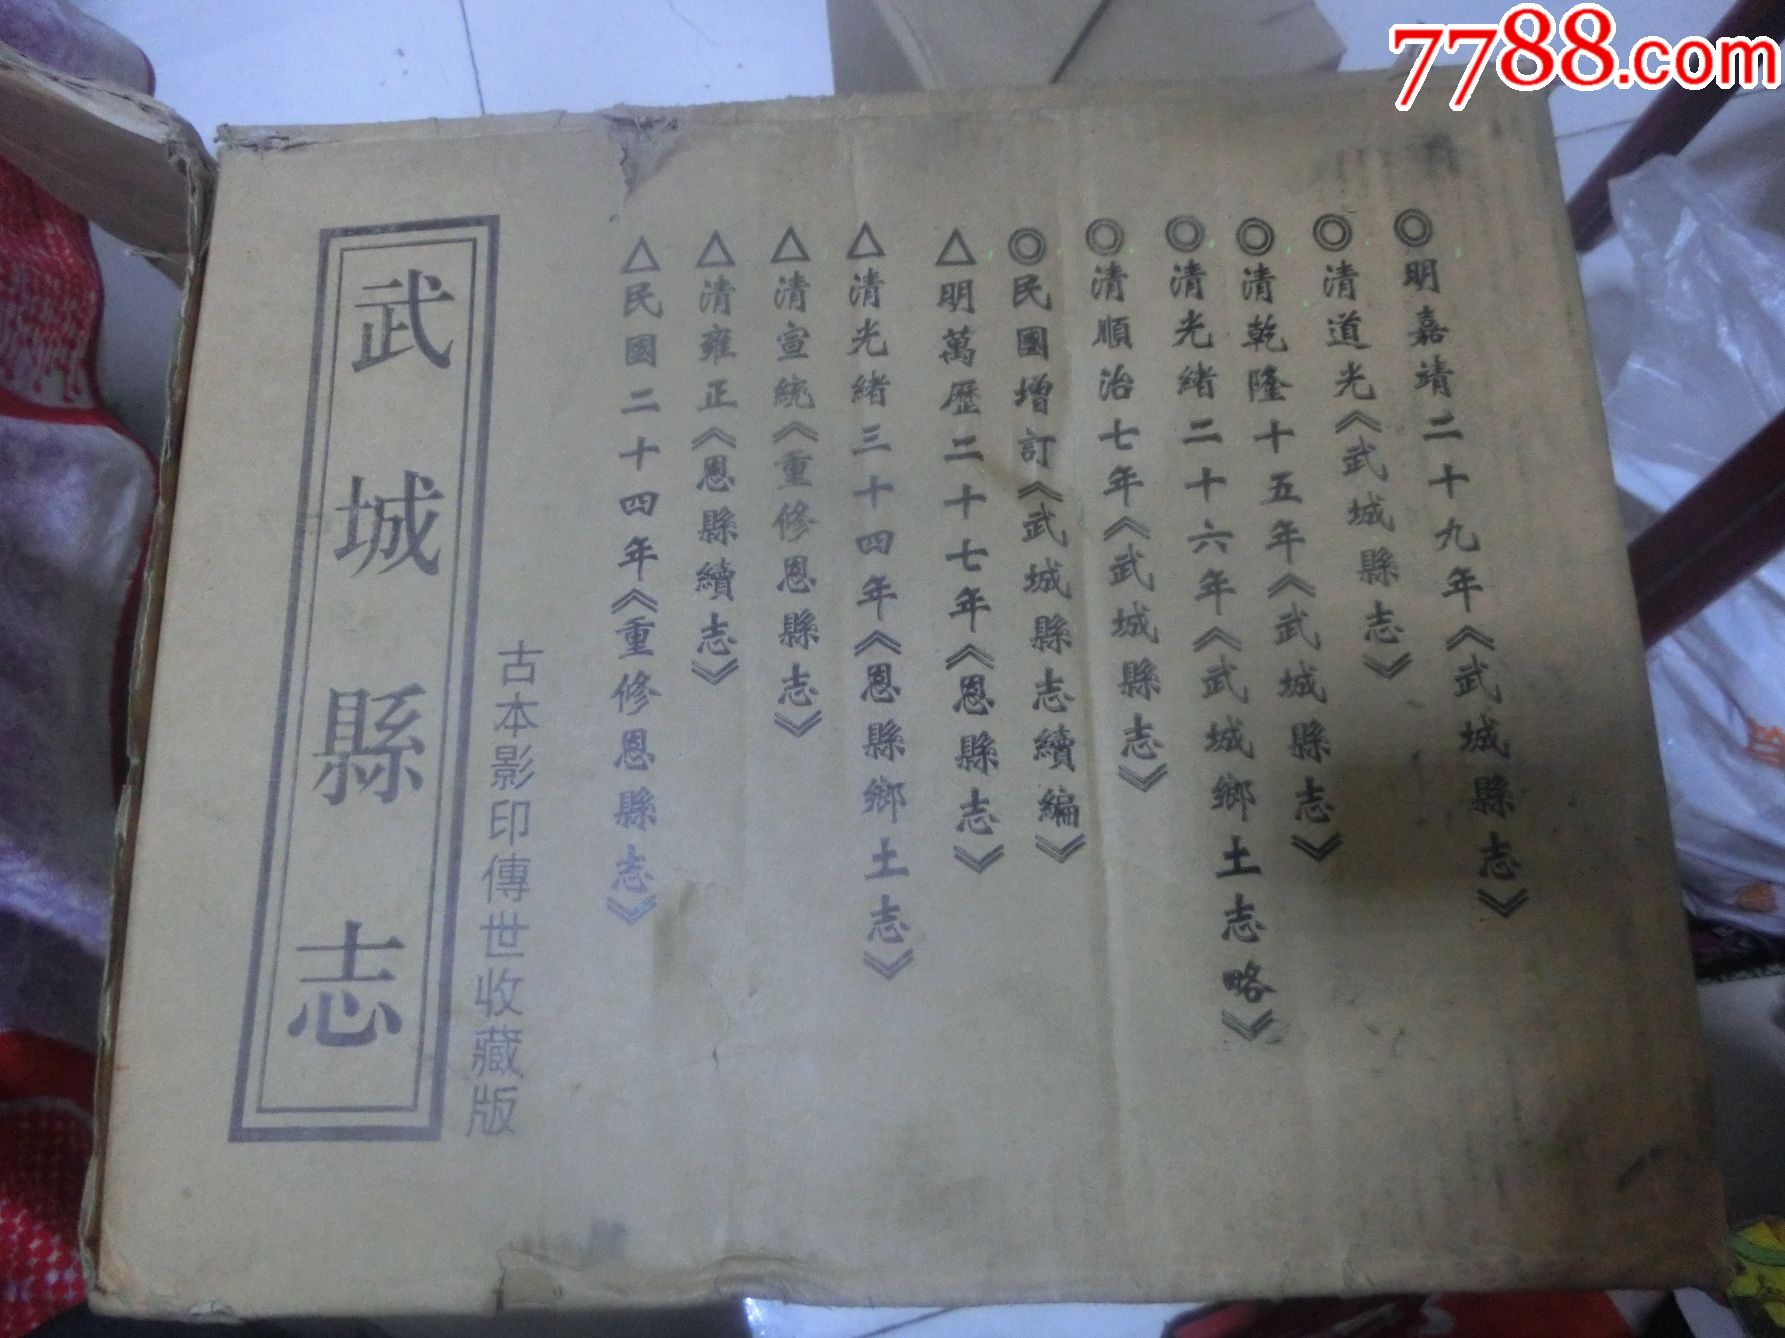 7788.com
◎明嘉靖二十九年《武城縣志》
◎清道光《武城縣志》
◎清乾隆十五年《武城縣志》
◎清光緒二十六年《武城鄉土志略》
◎清順治七年《武城縣志》
◎民國增訂《武城縣志續編》
△明萬歷二十七年《恩縣志》
△清光緒三十四年《恩縣鄉土志》
△清宣統《重修恩縣志》
△清雍正《恩縣續志》
△民國二十四年《重修恩縣志》
古本影印傳世收藏版
武城縣志